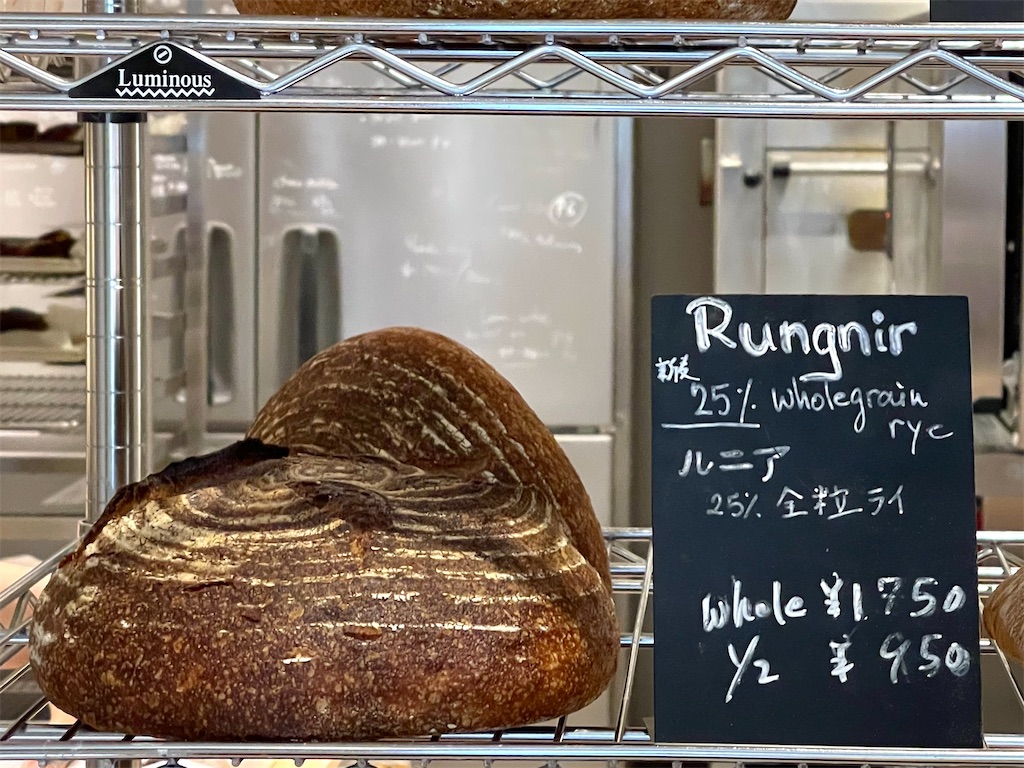 Luminous
Rungnir
25% wholegrain
rye
ルニア
25% 全粒ライ
whole ¥1.750
1/2 ¥950